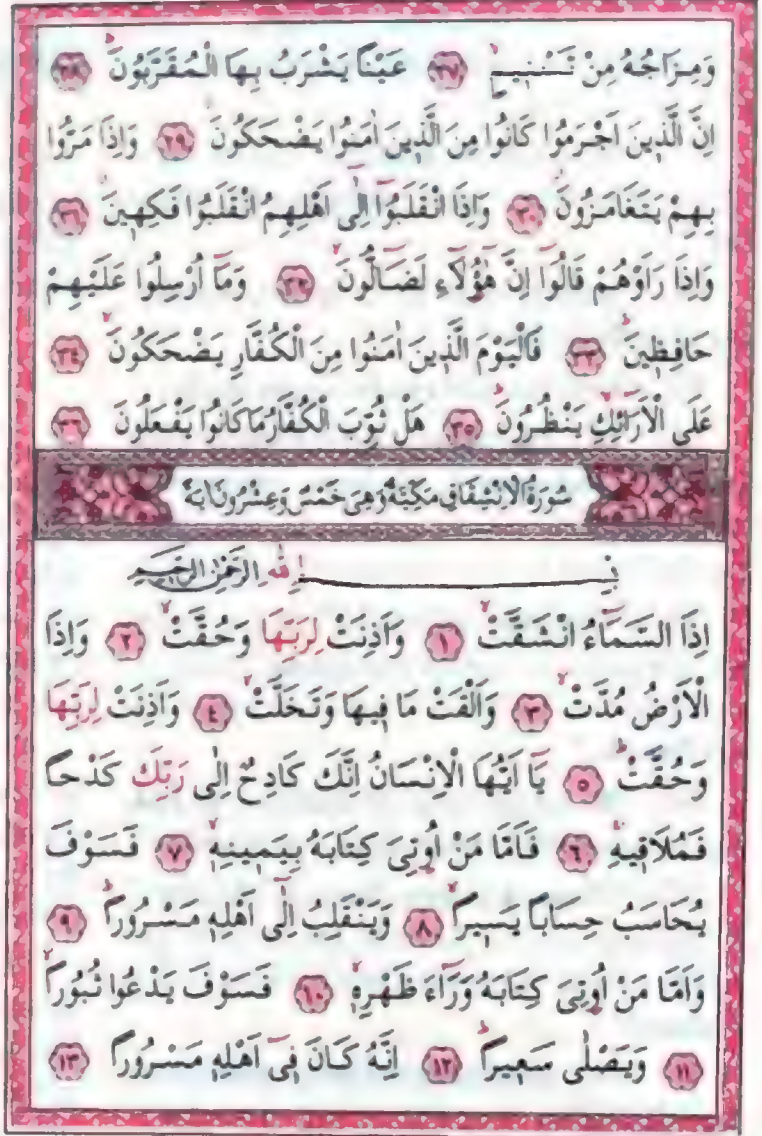 وَمِزَاجُهُ مِنْ تَسْنِيمٍۙ ﴿٢٧﴾ عَيْنًا يَشْرَبُ بِهَا الْمُقَرَّبُونَۜ ﴿٢٨﴾
اِنَّ الَّذِينَ اَجْرَمُوا كَانُوا مِنَ الَّذِينَ اٰمَنُوا يَضْحَكُونَۘ ﴿٢٩﴾ وَاِذَا مَرُّوا
بِهِمْ يَتَغَامَزُونَۘ ﴿٣٠﴾ وَاِذَا انْقَلَبُٓوا اِلٰٓى اَهْلِهِمُ انْقَلَبُوا فَكِهِينَۘ ﴿٣١﴾
وَاِذَا رَاَوْهُمْ قَالُٓوا اِنَّ هٰٓؤُ۬لَٓاءِ لَضَٓالُّونَۙ ﴿٣٢﴾ وَمَٓا اُرْسِلُوا عَلَيْهِمْ
حَافِظِينَۜ ﴿٣٣﴾ فَالْيَوْمَ الَّذِينَ اٰمَنُوا مِنَ الْكُفَّارِ يَضْحَكُونَۙ ﴿٣٤﴾
عَلَى الْاَرَٓائِكِۙ يَنْظُرُونَۜ ﴿٣٥﴾ هَلْ ثُوِّبَ الْكُفَّارُ مَا كَانُوا يَفْعَلُونَ ﴿٣٦﴾
سُورَةُ الْاِنْشِقَاقِ مَكِّيَّةٌ وَهِيَ خَمْسٌ وَعِشْرُونَ اٰيَةً
بِسْمِ اللّٰهِ الرَّحْمٰنِ الرَّحِيمِ
اِذَا السَّمَٓاءُ انْشَقَّتْۙ ﴿١﴾ وَاَذِنَتْ لِرَبِّهَا وَحُقَّتْۙ ﴿٢﴾ وَاِذَا
الْاَرْضُ مُدَّتْۙ ﴿٣﴾ وَاَلْقَتْ مَا فِيهَا وَتَخَلَّتْۙ ﴿٤﴾ وَاَذِنَتْ لِرَبِّهَا
وَحُقَّتْۜ ﴿٥﴾ يَٓا اَيُّهَا الْاِنْسَانُ اِنَّكَ كَادِحٌ اِلٰى رَبِّكَ كَدْحًا
فَمُلَاقِيهِۚ ﴿٦﴾ فَاَمَّا مَنْ اُو۫تِيَ كِتَابَهُ بِيَمِينِهِۙ ﴿٧﴾ فَسَوْفَ
يُحَاسَبُ حِسَابًا يَسِيرًاۙ ﴿٨﴾ وَيَنْقَلِبُ اِلٰٓى اَهْلِهِ مَسْرُورًاۜ ﴿٩﴾
وَاَمَّا مَنْ اُو۫تِيَ كِتَابَهُ وَرَٓاءَ ظَهْرِهِۙ ﴿١٠﴾ فَسَوْفَ يَدْعُوا ثُبُورًاۙ
﴿١١﴾ وَيَصْلٰى سَعِيرًاۜ ﴿١٢﴾ اِنَّهُ كَانَ فِٓي اَهْلِهِ مَسْرُورًاۜ ﴿١٣﴾